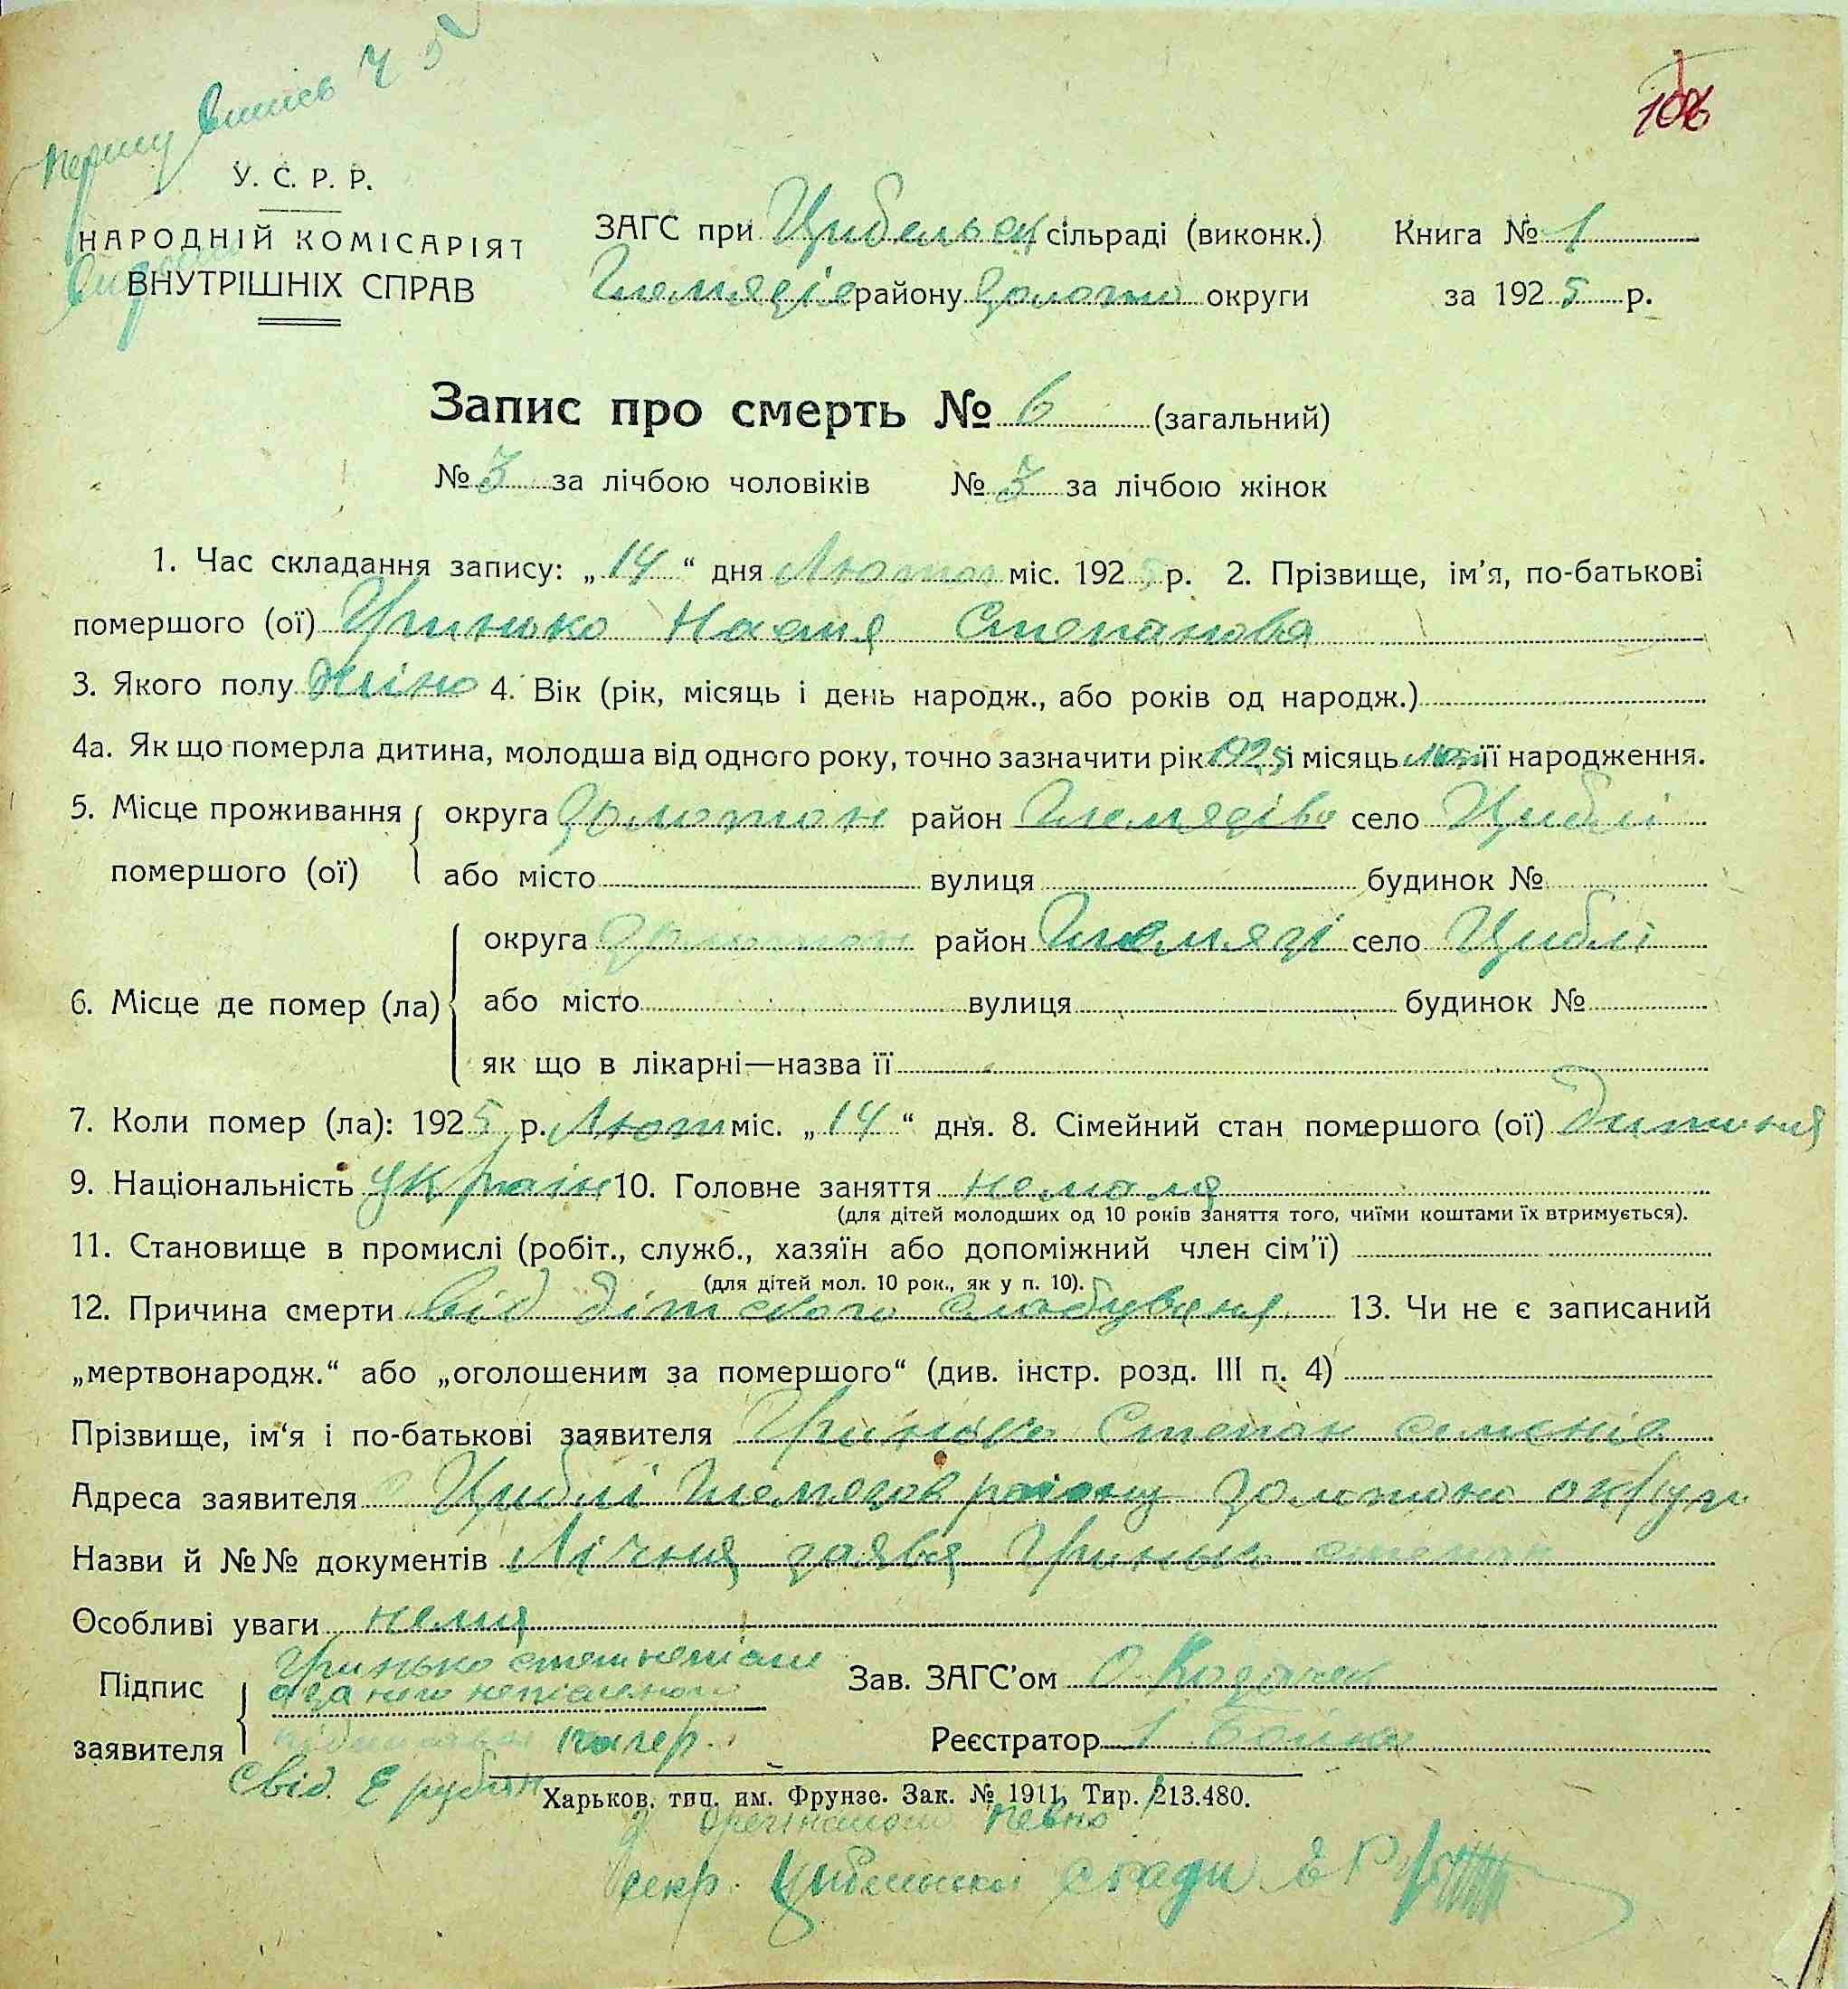 першу Випись Ч 5
106
У. С. Р. Р.
НАРОДНІЙ КОМІСАРІЯТ
ВНУТРІШНІХ СПРАВ
ЗАГС при Цибельск сільраді (виконк.) Книга № 1
району Золотон округи за 1925 р.
Запис про смерть № 6 (загальний)
№ 3 за лічбою чоловіків № 3 за лічбою жінок
1. Час складання запису: „14“ дня Лютого міс. 1925 р. 2. Прізвище, ім’я, по-батькові
помершого (ої) Гринько Настя Степанова
3. Якого полу жіно 4. Вік (рік, місяць і день народж., або років од народж.)
4а. Як що померла дитина, молодша від одного року, точно зазначити рік 1925 і місяць її народження.
5. Місце проживання округа Золотон район село Циблі
помершого (ої) або місто вулиця будинок №
округа Золотон район село Циблі
6. Місце де помер (ла) або місто вулиця будинок №
як що в лікарні—назва її
7. Коли помер (ла): 1925 р. Лют міс. „14“ дня. 8. Сімейний стан помершого (ої) Дитиня
9. Національність україн 10. Головне заняття немая
(для дітей молодших од 10 років заняття того, чиїми коштами їх втримується).
11. Становище в промислі (робіт., служб., хазяїн або допоміжний член сім’ї)
(для дітей мол. 10 рок., як у п. 10).
12. Причина смерти від дітского слабуваня 13. Чи не є записаний
„мертвонародж.“ або „оголошеним за помершого“ (див. інстр. розд. III п. 4)
Прізвище, ім‘я і по-батькові заявителя Гринько Степан семенів
Адреса заявителя Циблі району золотоно округи
Назви й №№ документів Лічня заявя Гринько степан
Особливі уваги немя
Підпис Гринько Зав. ЗАГС’ом О. Козачек
а за його неписьмен
заявителя Реєстратор Бойко
Свід.
Харьков. тип. им. Фрунзе. Зак. № 1911, Тир. 213.480.
З орегіналом певно
Секр. Циблівської сради